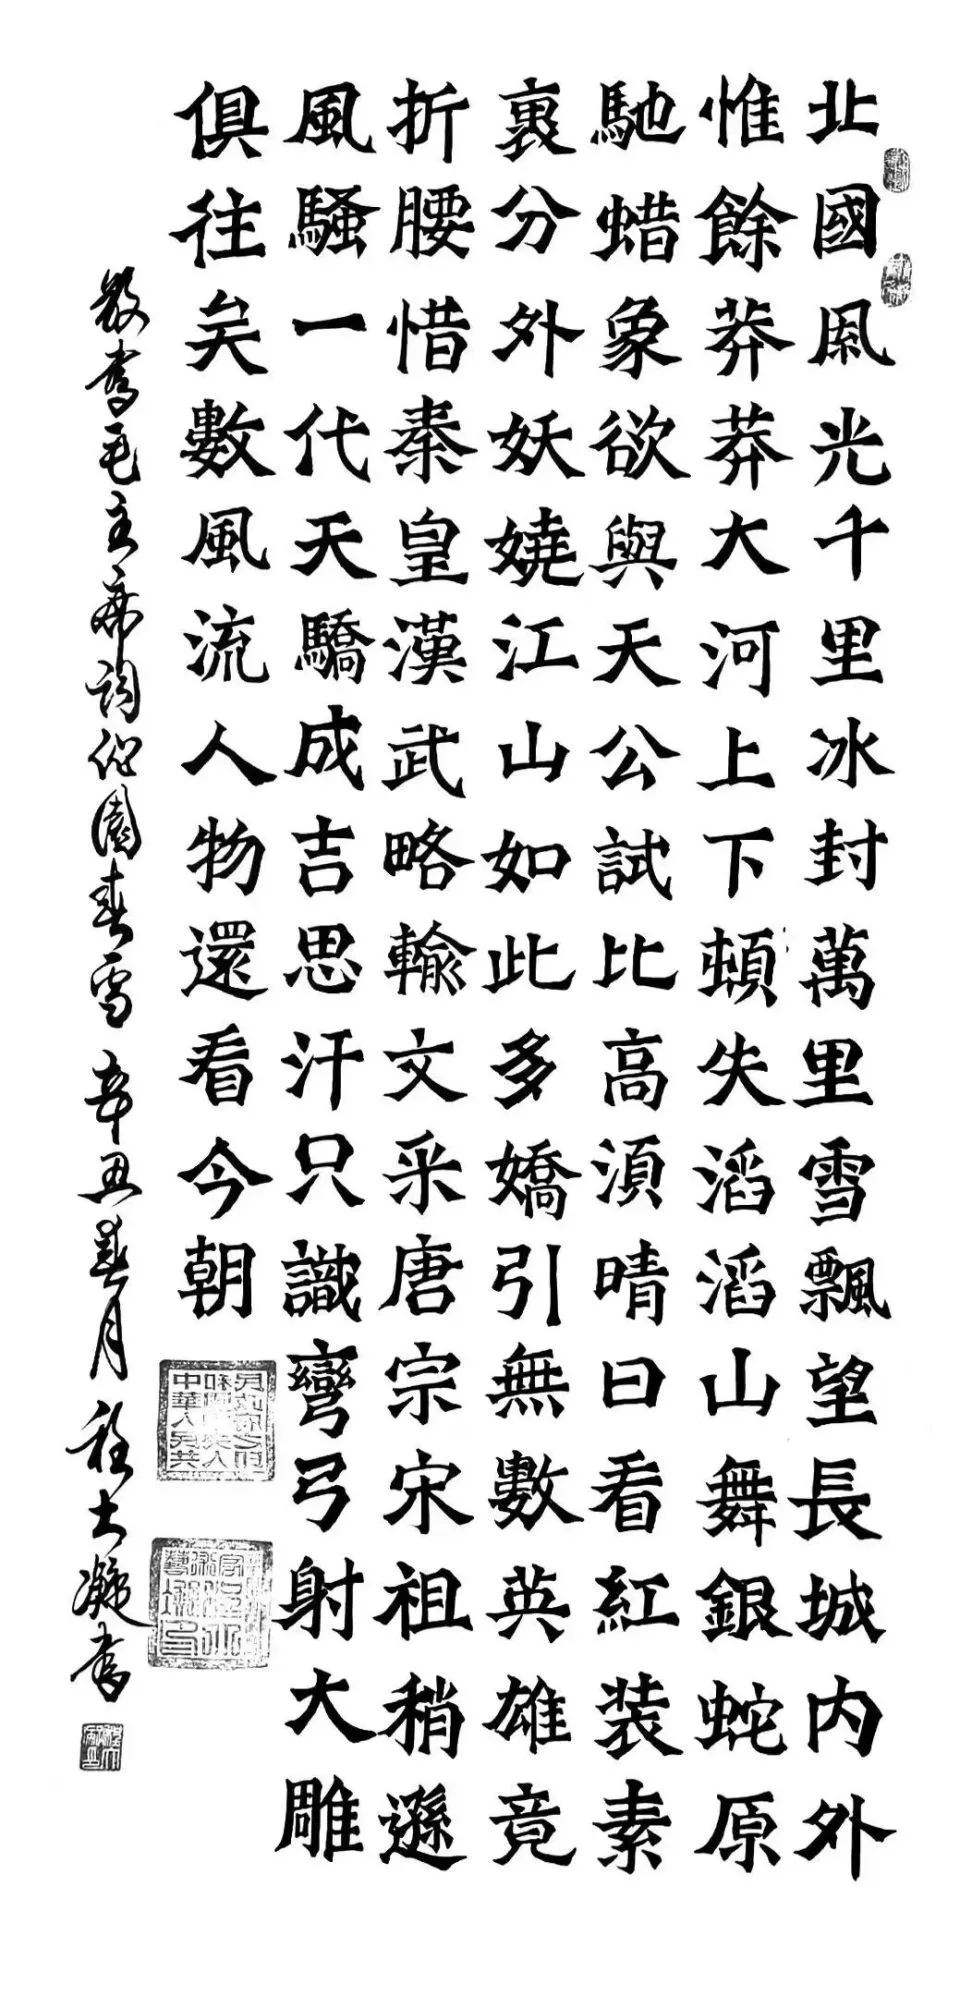 北國風光千里冰封萬里雪飄望長城内外
惟餘莽莽大河上下頓失滔滔山舞銀蛇原
馳蜡象欲與天公試比高須晴日看紅装素
裹分外妖嬈江山如此多嬌引無數英雄竟
折腰惜秦皇漢武略輸文采唐宗宋祖稍遜
風騷一代天驕成吉思汗只識彎弓射大雕
俱往矣數風流人物還看今朝
敬書毛主席詞沁園春雪辛丑春月程大凝書